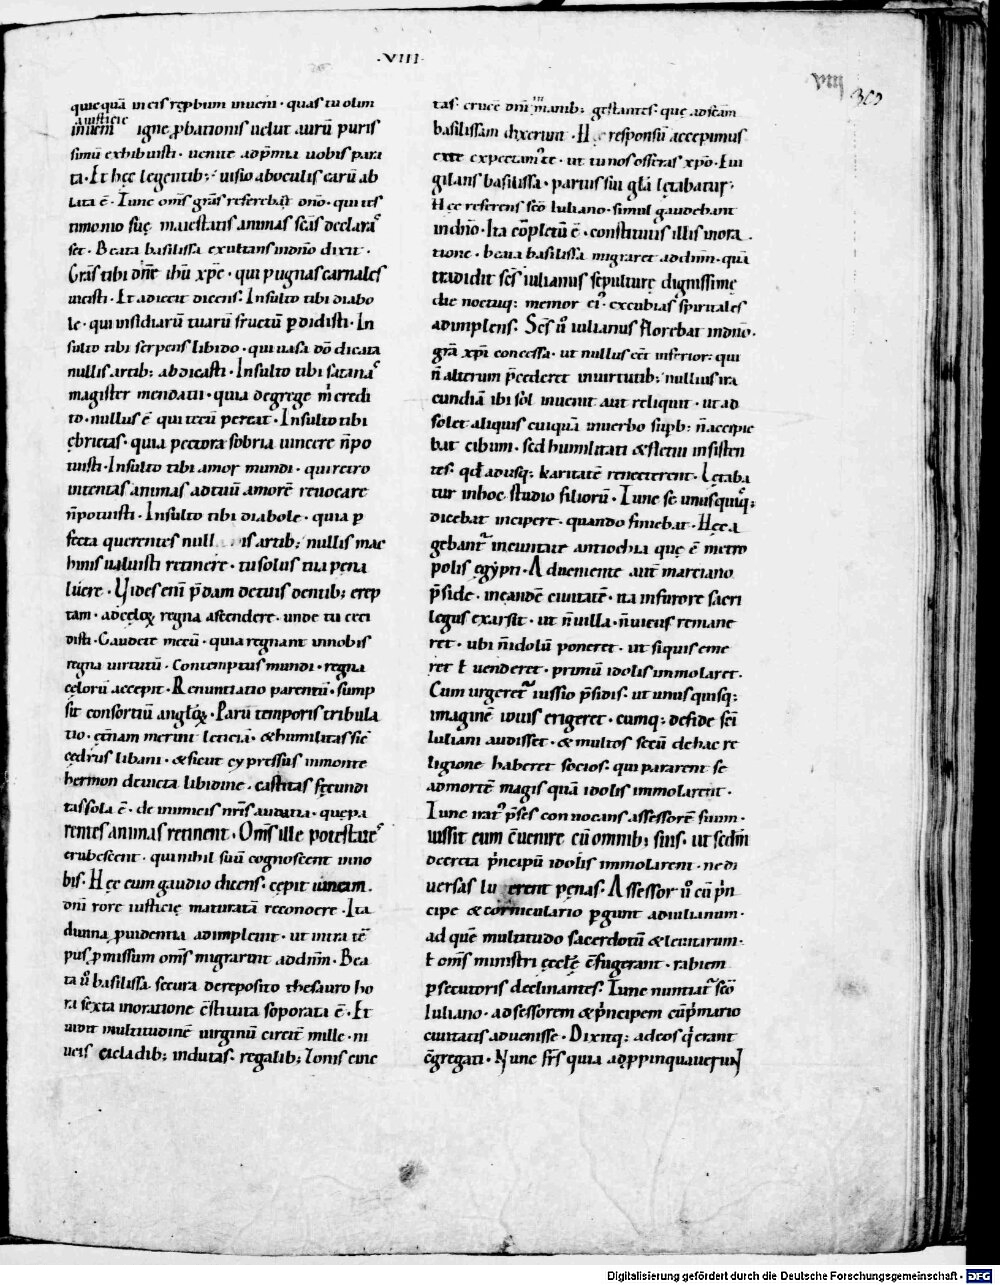 ·VIII·
VIIII
360
quicquā in eis rep̄bum inueni · quas tu olim
a iusticie
inueni igne ꝓbationis uelut aurū puris
simū exhibuisti · uenite ad p̄mia uobis para
ta · Et hęc legentib; uisio ab oculis earū ab
lata ē · Tunc om̄s grās referebāt dn̄o · qui tes
timonio suę maiestatis animas sc̄as declara
ret · Beata basilissa exultans in dn̄o dixit ·
Grās tibi dn̄e ih̄u xp̄e · qui pugnas carnales
uicisti · Et adiecit dicens; Insulto tibi diabo
le · qui insidiarū tuarū fructū ꝑdidisti · In
sulto tibi serpens libido · qui uasa dō dicata
nullis artib; abdicasti · Insulto tibi satana
magister mendatii · quia de grege m̄ credi
to · nullus ē qui tecū pereat · Insulto tibi
ebrietas · quia pectora sobria uincere n̄ po
tuisti · Insulto tibi amor mundi · qui retro
intentas animas ad tuū amorē reuocare
n̄ potuisti · Insulto tibi diabole · quia ꝑ
fecta querentes null is artib; nullis mac
hinis ualuisti retinere · tu solus tua pena
luere · Vides enī p̄dam de tuis dentib; erep
tam · ad cęloꝝ regna ascendere · unde tu ceci
disti · Gaudete mecū · quia regnant in nobis
regna uirtutū · Contemptus mundi · regna
cęlorū accepit · Renuntiatio parentū · sump
sit consortiū angl̄oꝝ · Parui temporis tribula
tio · ęt̄nam meruit leticiā · & humilitas sic̄
cędrus libani · & sicut cypressus in monte
hermon deuicta libidine · castitas fęcundi
tas sola ē · de inimicis nr̄is audatia · que pa
rentes animas retinent · Om̄s ille potestates
erubescent · qui nihil suū cognoscent in no
bis · Hęc cum gaudio dicens · cępit uineam
dn̄i rore iusticię maturatā recognoscere · Ita
diuina ꝓuidentia adimpleuit · ut intra tē
pus ꝓmissum om̄s migrarint ad dn̄m · Bea
ta ū basilissa secura de reposito thesauro ho
ra sexta in oratione c̄stituta soporata ē · Et
uidit multitudinē uirginū circit̄ mille · ni
ueis cicladib; indutas · regalib; zonis cinc
tas · crucē dn̄i in manib; gestantes · que ad sc̄am
basilissam dixerunt · Hęc responsū accepimus
exte expectam te · ut tu nos offeras xp̄o · Eui
gilans basilissa · partus sui gl̄a lętabatur;
Hęc referens sc̄o Iuliano · simul gaudebant
in dn̄o · Ita cōpletū ē · constitutis illis in ora
tione · beata basilissa migraret ad dn̄m · quā
tradidit sc̄s iulianus sepulturę dignissimę
die noctuq; memor ei excubias spiritales
adimplens · Sc̄s ū iulianus florebat in dn̄o ·
grā xp̄i concessa · ut nullus eēt inferior · qui
n̄ alterum p̄cederet in uirtutib; nullius ira
cundiā ibi sol inuenit aut reliquit · ut ad
solet aliquis cuiquā in uerbo supb; n̄ accipie
bat cibum · sed humilitati & fletui insisten
tes · qd̄ adusq; karitatē reuerterent · Lętaba
tur in hoc studio filiorū · Tunc se unusquisq;
dicebat incipere · quando finiebat · Hęc a
gebant in ciuitate antiochia que ē metro
polis egypti · Adueniente aut̄ marciano
p̄side · in eandē ciuitatē · ita in furore sacri
legus exarsit · ut n̄ uilla · n̄ uicus remane
ret · ubi n̄ idolū poneret · ut si quis eme
ret ł uenderet · primū idolis immolaret ·
Cum urgeret iussio p̄sidis · ut unusquisq;
imaginē iouis erigeret · cumq; de fide sc̄i
Iuliani audisset · & multos secū de hac re
ligione haberet socios · qui pararent se
ad mortē magis quā idolis immolarent ·
Tunc irat p̄ses conuocans assessorē suum ·
iussit eum c̄uenire cū omnib; suis · ut scdm̄
decreta p̄ncipū idolis immolarent · ne di
uersas lu erent pęnas · Assessor ū cū p̄n
cipe & corniculario ꝑgunt ad iulianum ·
ad quē multitudo sacerdotū & leuitarum ·
ł om̄s ministri ęccl̄ę c̄fugerant · rabiem
ꝑsecutoris declinantes · Tunc nuntiat sc̄o
Iuliano · adsessorem & p̄ncipem cū p̄mario
ciuitatis aduenisse · Dixitq; ad eos q̄ erant
c̄gregati · Nunc fr̄s quia adpropinquauerun
Digitalisierung gefördert durch die Deutsche Forschungsgemeinschaft - DFG